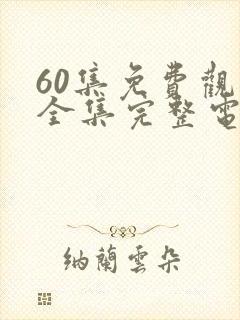 60集免費觀
全集完整電
納蘭雲朵